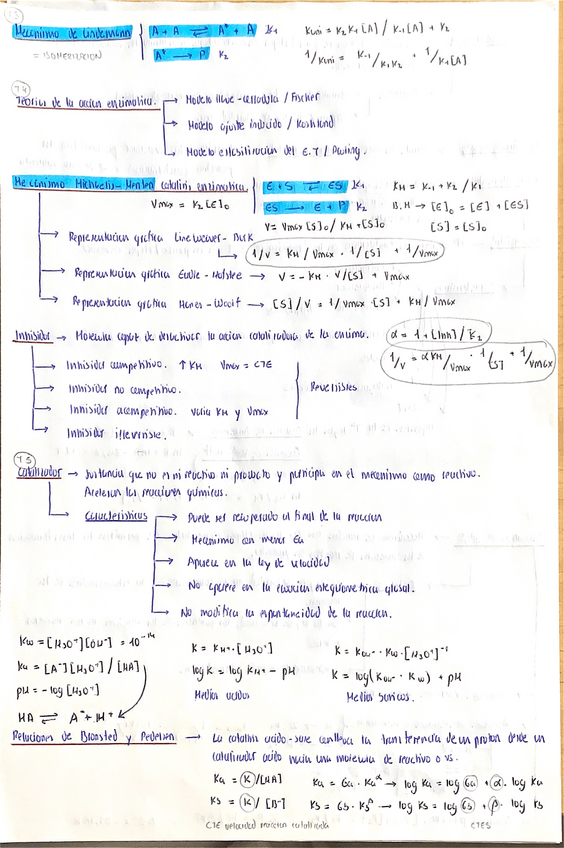 Mecanismo de Lindemann
A + A ⇌ A* + A K₁
Kuni = K₂K₁[A] / K₋₁[A] + K₂
= ISOMERIZACION
A* → P K₂
1/Kuni = K₋₁/K₁K₂ + 1/K₁[A]
T4
Teorías de la acción enzimática.
→ Modelo llave-cerradura / Fischer
→ Modelo ajuste inducido / Koshland
→ Modelo estabilización del E.T / Pauling.
Mecanismo Michaelis-Menten catálisis enzimática
E + S ⇌ ES K₁
KM = K₋₁ + K₂ / K₁
Vmax = K₂[E]₀
ES → E + P K₂
B.M → [E]₀ = [E] + [ES]
V = Vmax [S]₀ / KM + [S]₀
[S] = [S]₀
→ Representación gráfica Lineweaver-Burk
→ 1/V = KM / Vmax · 1/[S] + 1/Vmax
→ Representación gráfica Eadie-Hofstee → V = -KM · V/[S] + Vmax
→ Representación gráfica Hanes-Woolf → [S]/V = 1/Vmax · [S] + KM/Vmax
Inhibidor → Molécula capaz de desactivar la acción catalizadora de la enzima.
α = 1 + [Inh] / K₂
1/V = αKM/Vmax · 1/[S] + 1/Vmax
→ Inhibidor competitivo. ↑ KM Vmax = CTE
→ Inhibidor no competitivo.
Reversibles
→ Inhibidor acompetitivo. varía KM y Vmax
→ Inhibidor irreversible.
T5
Catalizador → Sustancia que no es ni reactivo ni producto y participa en el mecanismo como reactivo.
Aceleran las reacciones químicas.
→ Características → Puede ser recuperado al final de la reacción
→ Mecanismo con menis Ea
→ Aparece en la ley de velocidad
→ No aparece en la ecuación estequiométrica global.
→ No modifica la espontaneidad de la reacción.
Kw = [H₃O⁺][OH⁻] = 10⁻¹⁴
K = KH⁺·[H₃O⁺]
K = KOH⁻ · Kw · [H₃O⁺]⁻¹
Ka = [A⁻][H₃O⁺] / [HA]
log K = log KH⁺ - pH
K = log(KOH⁻ · Kw) + pH
pH = -log [H₃O⁺]
Medios ácidos
Medios básicos.
HA ⇌ A⁻ + H⁺
Relaciones de Bronsted y Pedersen → La catálisis ácido-base conlleva la transferencia de un protón desde un
catalizador ácido hacia una molécula de reactivo o vs.
Ka = K/[HA]
Ka = Ga · Ka^α → log Ka = log Ga + α · log Ka
KB = K / [B⁻]
KB = GB · KB^β → log KB = log GB + β · log KB
CTE velocidad reacción catalizada
CTES